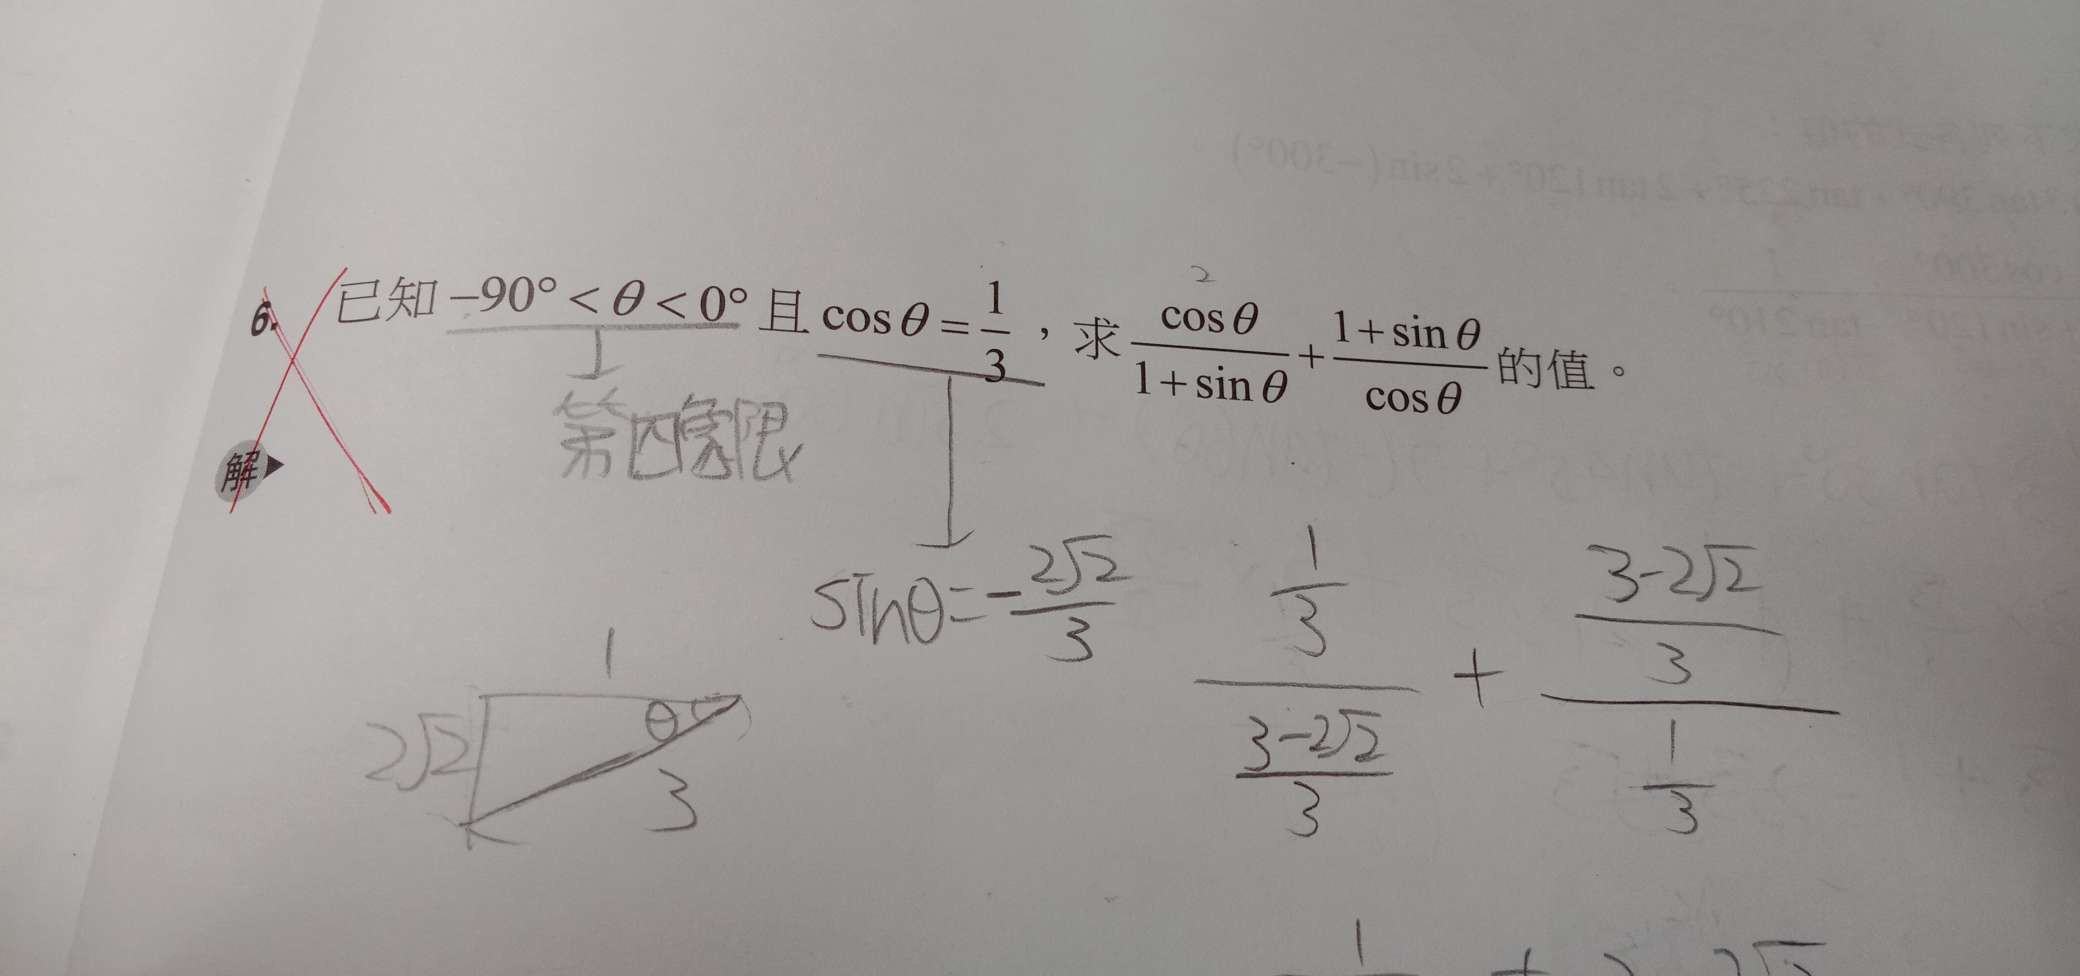 6. 已知 −90° < θ < 0° 且 cosθ = 1/3，求 cosθ/(1+sinθ) + (1+sinθ)/cosθ 的值。
2
解▶
第四象限
sinθ = −2√2/3
(1/3)/((3−2√2)/3) + ((3−2√2)/3)/(1/3)
1
2√2
θ
3